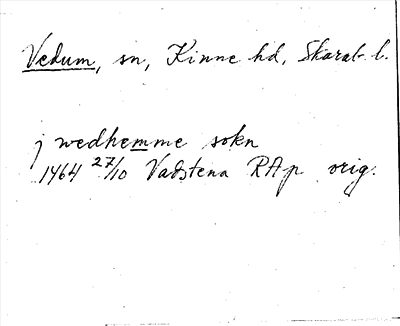 Vedum, sn, Kinne hd, Skarab. l.
j wedhemme sokn
1464 27/10 Vadstena RAp orig.